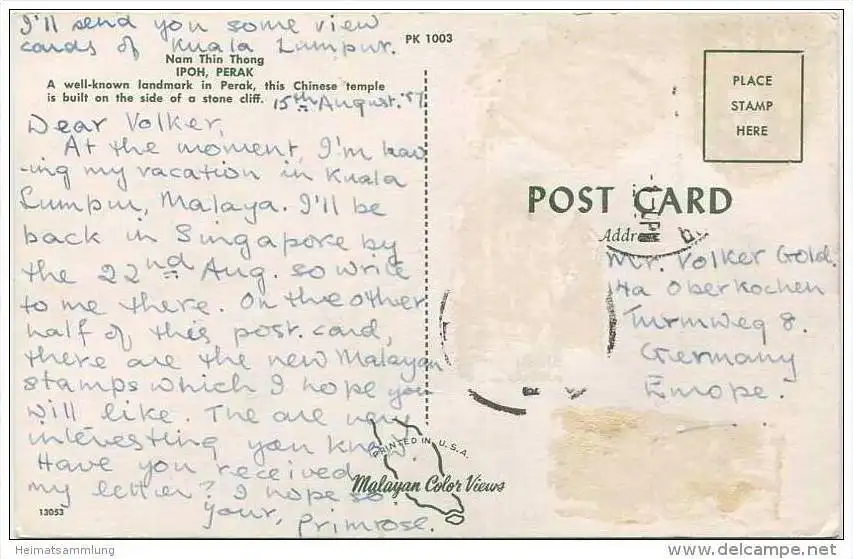 I'll send you some view
cards of Kuala Lumpur.
PK 1003
Nam Thin Thong
IPOH, PERAK
A well-known landmark in Perak, this Chinese temple
is built on the side of a stone cliff.
15th August. '57
Dear Volker,
At the moment, I'm hav
-ing my vacation in Kuala
Lumpur, Malaya. I'll be
back in Singapore by
the 22nd Aug. so write
to me there. On the other
half of this post.card,
there are the new Malayan
stamps which I hope you
will like. The are very
interesting you know.
Have you received
my letter? I hope so.
Your, Primrose.
13053
PRINTED IN U.S.A.
Malayan Color Views
PLACE
STAMP
HERE
POST CARD
Address
Mr. Volker Gold.
14a Oberkochen
Turmweg 8.
Germany
Europe.
Heimatsammlung
delcampe.net